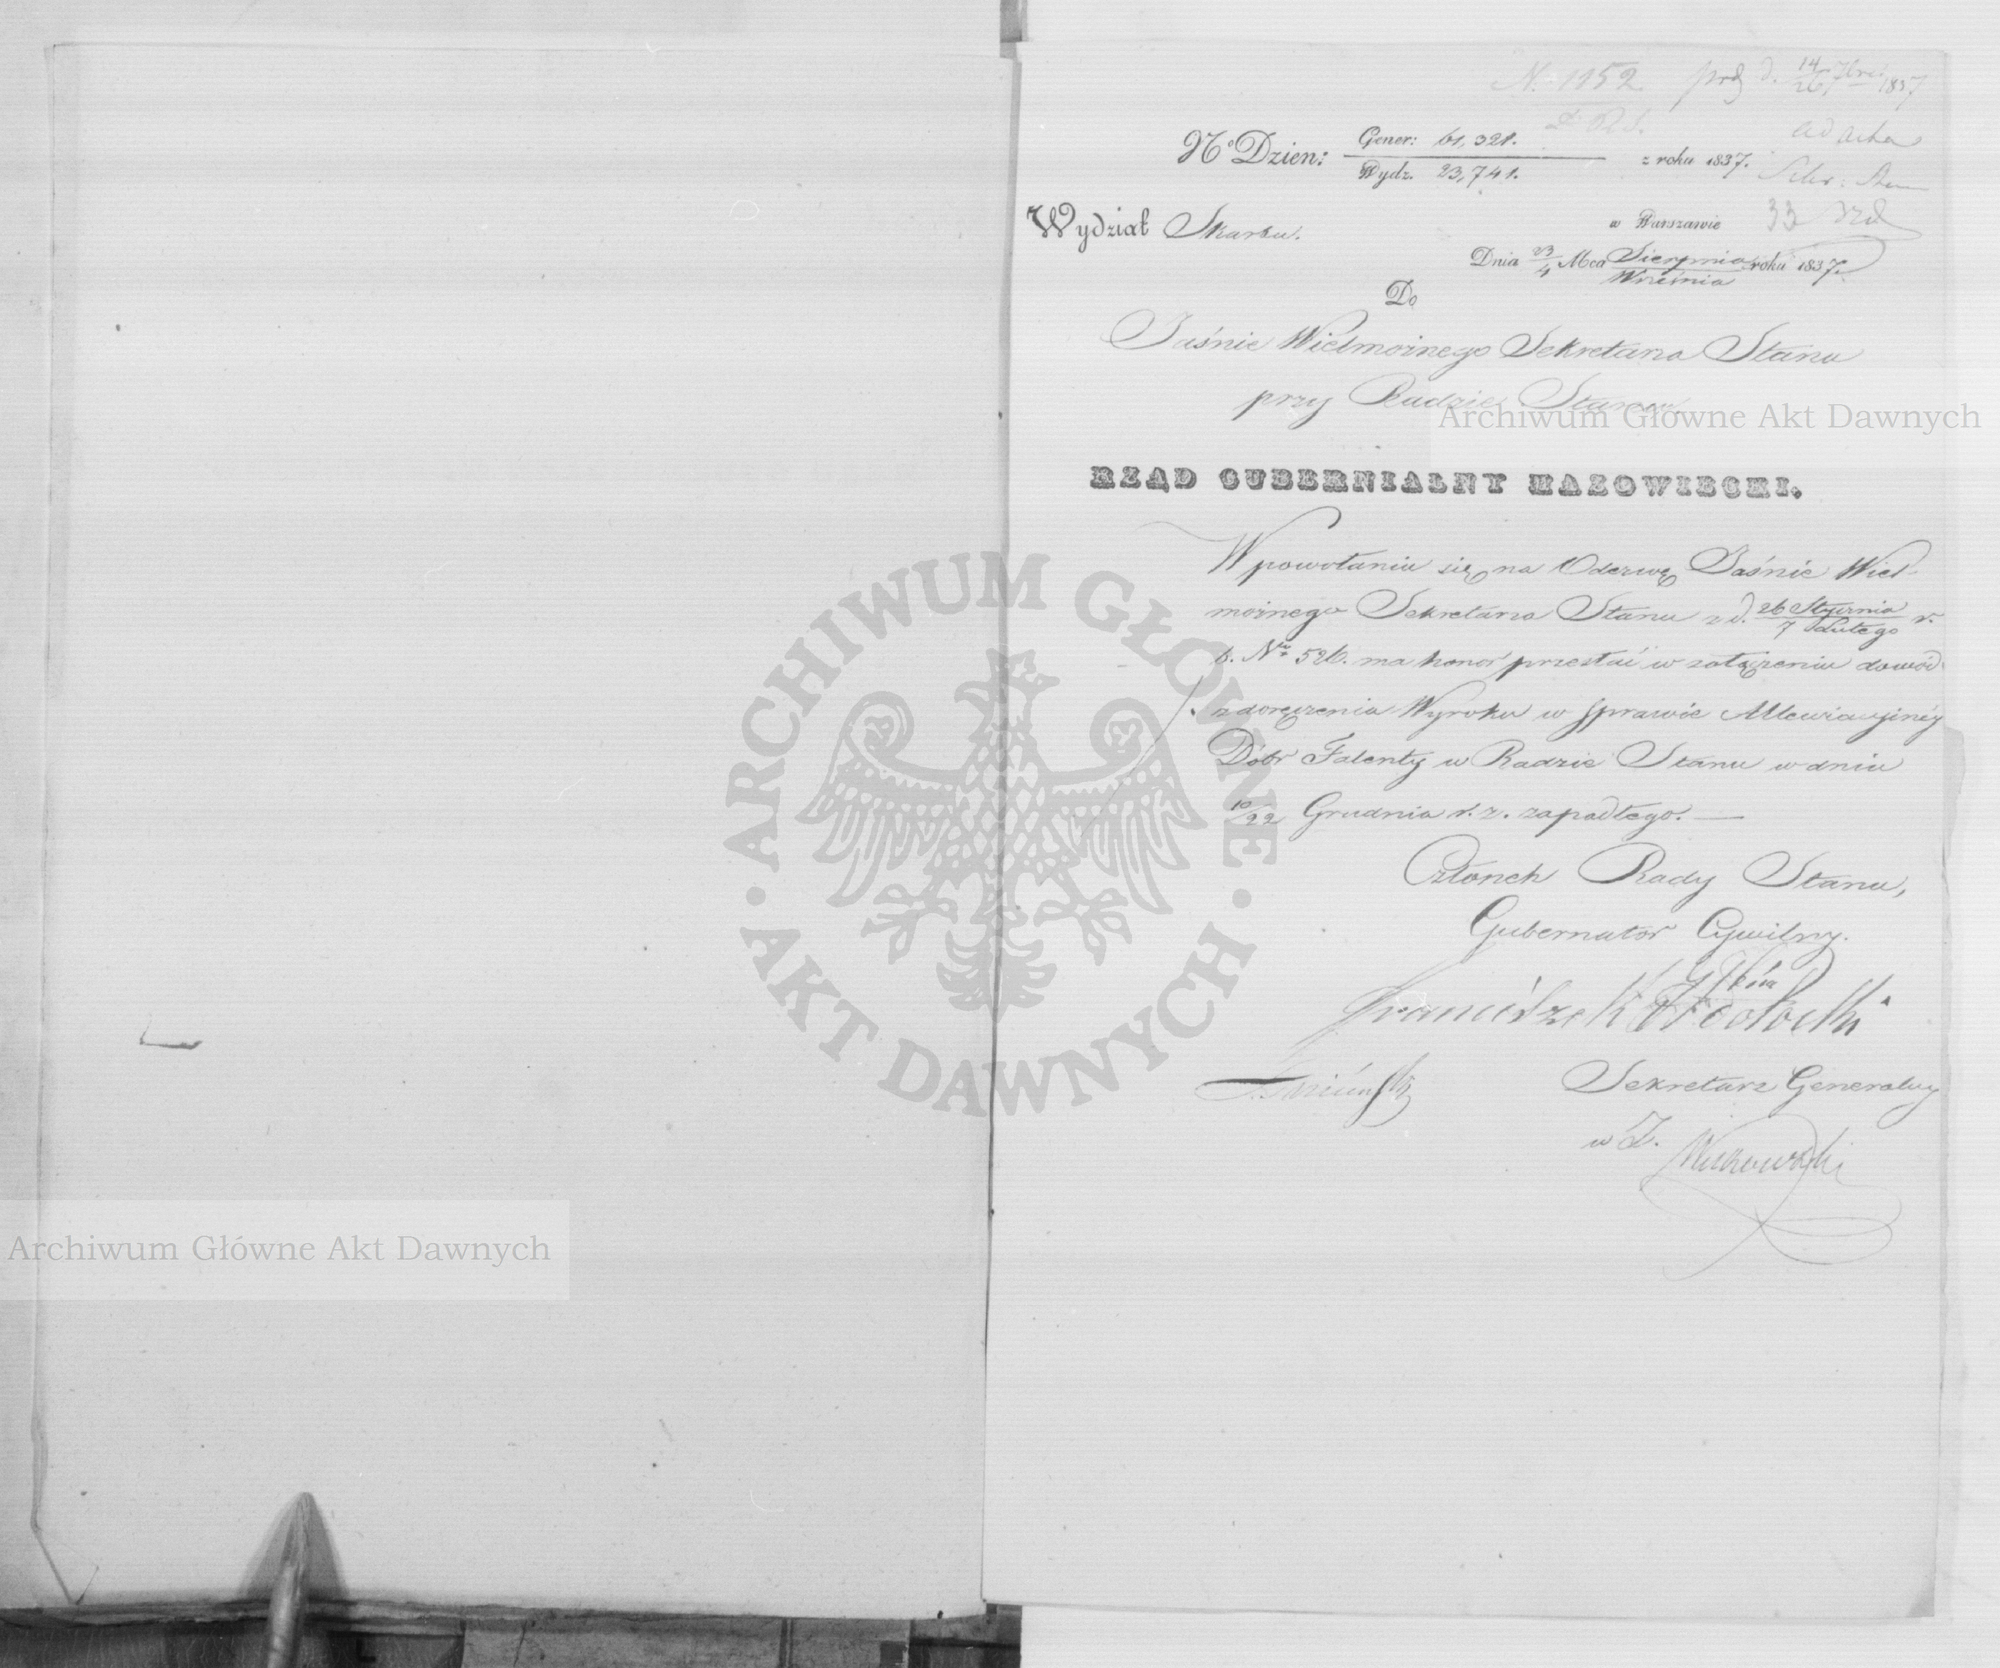 N. 1152 prd d. 14/26 7bra 1837
D. R. S.
ad acta
No Dzien: Gener: 61,321. / Wydz. 23,741. z roku 1837.
33
Wydział Skarbu.
w Warszawie
Dnia 23/4 Mca Sierpnia/Września roku 1837.
Do
Jaśnie Wielmożnego Sekretarza Stanu
przy Radzie Stanu
Archiwum Główne Akt Dawnych
RZĄD GUBERNIALNY MAZOWIECKI.
W powołaniu się na Odezwę Jaśnie Wiel-
możnego Sekretarza Stanu z d. 26 Stycznia/7 Lutego r.
b. Nr 526. ma honor przesłać w załączeniu dowód
z doręczenia Wyroku w sprawie Allewiacyjnéy
Dóbr Falenty w Radzie Stanu w dniu
10/22 Grudnia r. z. zapadłego.—
Członek Rady Stanu,
Gubernator Cywilny.
Franciszek
Sekretarz Generalny
w Z.
ARCHIWUM GŁÓWNE
AKT DAWNYCH
Archiwum Główne Akt Dawnych